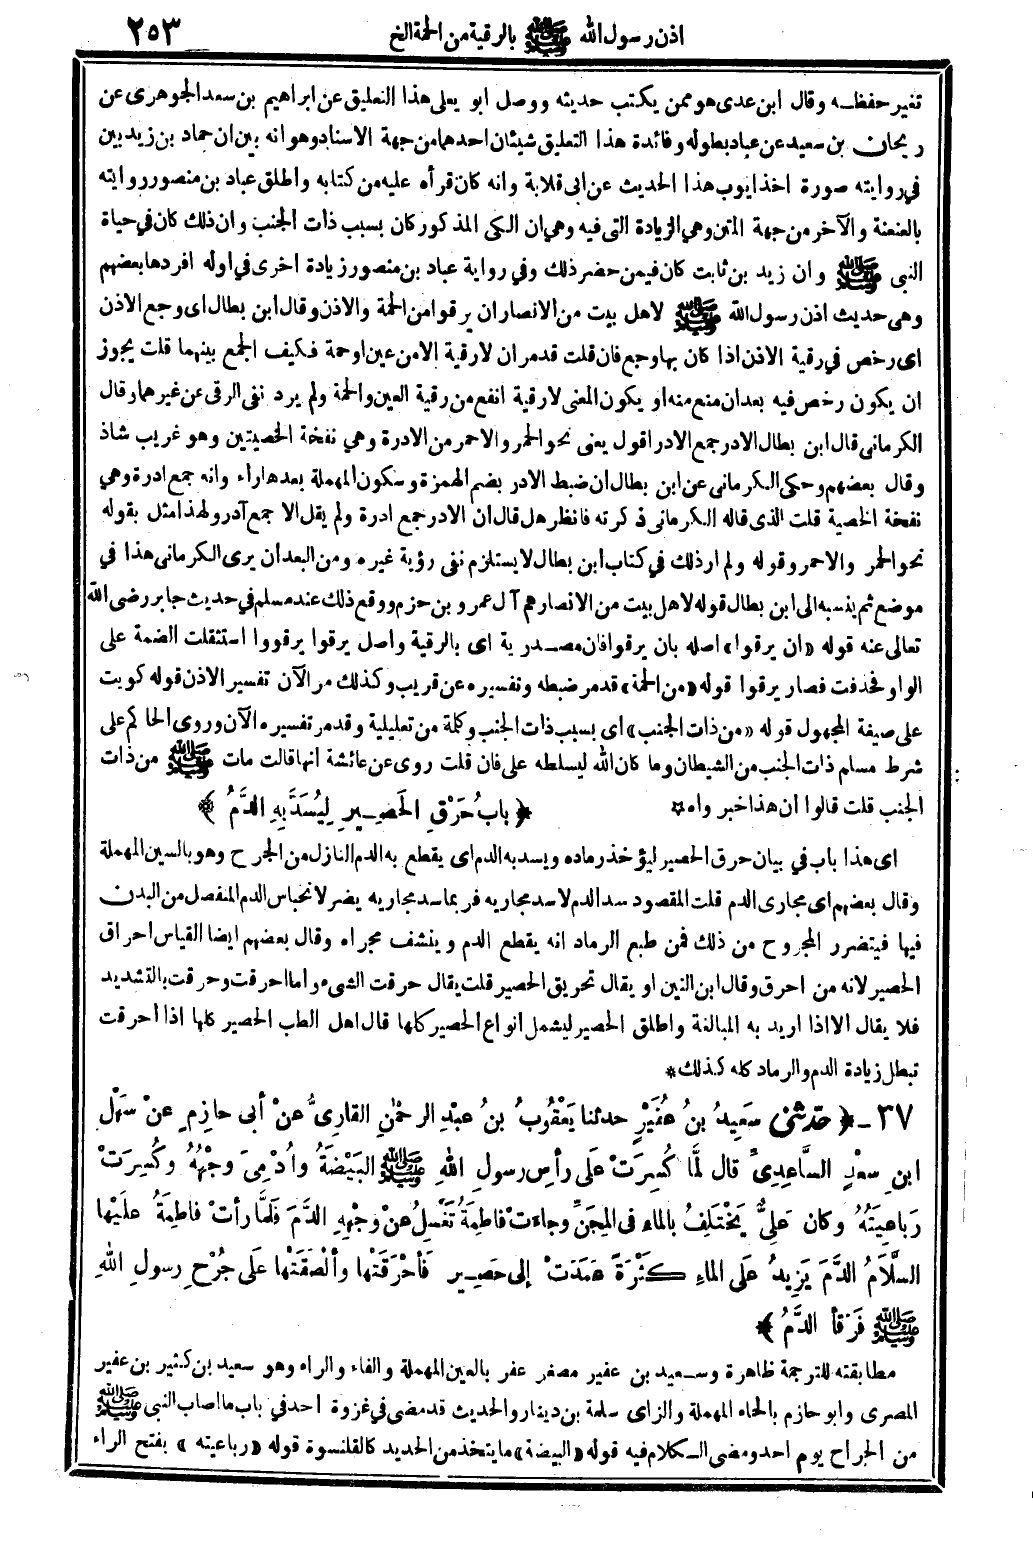 اذن رسول الله ﷺ بالرقية من الحمة الخ ٢٥٣
تغير حفظه وقال ابن عدى هو ممن يكتب حديثه ووصل ابو يعلى هذا التعليق عن ابراهيم بن سعد الجوهرى عن
ريحان بن سعيد عن عباد بطوله وفائدة هذا التعليق شيئان احدهما من جهة الاسناد وهو انه بين ان حماد بن زيد بين
في روايته صورة اخذ ايوب هذا الحديث عن ابى قلابة وانه كان قرأه عليه من كتابه واطلق عباد بن منصور روايته
بالعنعنة والآخر من جهة المتن وهي الزيادة التى فيه وهي ان الكى المذكور كان بسبب ذات الجنب وان ذلك كان في حياة
النبى ﷺ وان زيد بن ثابت كان فيمن حضر ذلك وفي رواية عباد بن منصور زيادة اخرى في اوله افردها بعضهم
وهى حديث اذن رسول الله ﷺ لاهل بيت من الانصار ان يرقوا من الحمة والاذن وقال ابن بطال اى وجع الاذن
اى رخص في رقية الاذن اذا كان بها وجع فان قلت قد مر ان لا رقية الا من عين او حمة فكيف الجمع بينهما قلت يجوز
ان يكون رخص فيه بعد ان منع منه او يكون المعنى لا رقية انفع من رقية العين والحمة ولم يرد نفى الرقى عن غيرهما وقال
الكرمانى قال ابن بطال الادر جمع الادر اقول يعنى نحو الحمر والاحمر من الادرة وهي نفخة الخصيتين وهو غريب شاذ
وقال بعضهم وحكى الكرمانى عن ابن بطال ان ضبط الادر بضم الهمزة وسكون المهملة بعدها راء وانه جمع ادرة وهي
نفخة الخصية قلت الذى قاله الكرمانى ذكرته فانظر هل قال ان الادر جمع ادرة ولم يقل الا جمع آدر ولهذا مثل بقوله
نحو الحمر والاحمر وقوله ولم ار ذلك في كتاب ابن بطال لا يستلزم نفى رؤية غيره ومن البعد ان يرى الكرمانى هذا في
موضع ثم ينسبه الى ابن بطال قوله لاهل بيت من الانصار هم آل عمرو بن حزم ووقع ذلك عند مسلم في حديث جابر رضى الله
تعالى عنه قوله «ان يرقوا» اصله بان يرقوا فان مصدرية اى بالرقية واصل يرقوا يرقووا استثقلت الضمة على
الواو فحذفت فصار يرقوا قوله «من الحمة» قد مر ضبطه وتفسيره عن قريب وكذلك مر الآن تفسير الاذن قوله كويت
على صيغة المجهول قوله «من ذات الجنب» اى بسبب ذات الجنب وكلمة من تعليلية وقد مر تفسيره الآن وروى الحاكم على
شرط مسلم ذات الجنب من الشيطان وما كان الله ليسلطه على فان قلت روى عن عائشة انها قالت مات ﷺ من ذات
الجنب قلت قالوا ان هذا خبر واه *
﴿ بابُ حَرْقِ الحَصِيرِ لِيُسَدَّ بِهِ الدَّمُ ﴾
اى هذا باب في بيان حرق الحصير ليؤخذ رماده ويسد به الدم اى يقطع به الدم النازل من الجرح وهو بالسين المهملة
وقال بعضهم اى مجارى الدم قلت المقصود سد الدم لا سد مجاريه فربما سد مجاريه يضر لانحباس الدم المنفصل من البدن
فيها فيتضرر المجروح من ذلك فمن طبع الرماد انه يقطع الدم وينشف مجراه وقال بعضهم ايضا القياس احراق
الحصير لانه من احرق وقال ابن التين او يقال تحريق الحصير قلت يقال حرقت الشىء واما احرقت وحرقت بالتشديد
فلا يقال الا اذا اريد به المبالغة واطلق الحصير ليشمل انواع الحصير كلها قال اهل الطب الحصير كلها اذا أحرقت
تبطل زيادة الدم والرماد كله كذلك *
٣٧ - ﴿ حدَّثنى سَعِيدُ بنُ عُفَيْرٍ حدثنا يَعْقُوبُ بنُ عبْدِ الرحْمٰنِ القارِىُّ عنْ أبى حازِمٍ عنْ سَهْلِ
ابنِ سعْدٍ السَّاعِدِىِّ قال لَمَّا كُسِرَتْ عَلَى رأسِ رسولِ اللهِ ﷺ البَيْضَةُ وأُدْمِىَ وجْهُهُ وكُسِرَتْ
رَباعِيَتُهُ وكان عَلِىٌّ يَخْتَلِفُ بالماءِ فى المِجَنِّ وجاءَتْ فاطِمَةُ تَغْسِلُ عنْ وجْهِهِ الدَّمَ فَلَمَّا رأتْ فاطِمَةُ عليْها
السَّلاَمُ الدَّمَ يَزِيدُ عَلَى الماءِ كَثْرَةً عَمَدَتْ إلى حَصِيرٍ فَأحْرَقَتْها وألْصَقَتْها عَلَى جُرْحِ رسولِ اللهِ
ﷺ فَرَقأَ الدَّمُ ﴾ *
مطابقته للترجمة ظاهرة وسعيد بن عفير مصغر عفر بالعين المهملة والفاء والراء وهو سعيد بن كثير بن عفير
المصرى وابو حازم بالحاء المهملة والزاى سلمة بن دينار والحديث قد مضى في غزوة احد في باب ما اصاب النبى ﷺ
من الجراح يوم احد ومضى الكلام فيه قوله «البيضة» ما يتخذ من الحديد كالقلنسوة قوله «رباعيته» بفتح الراء